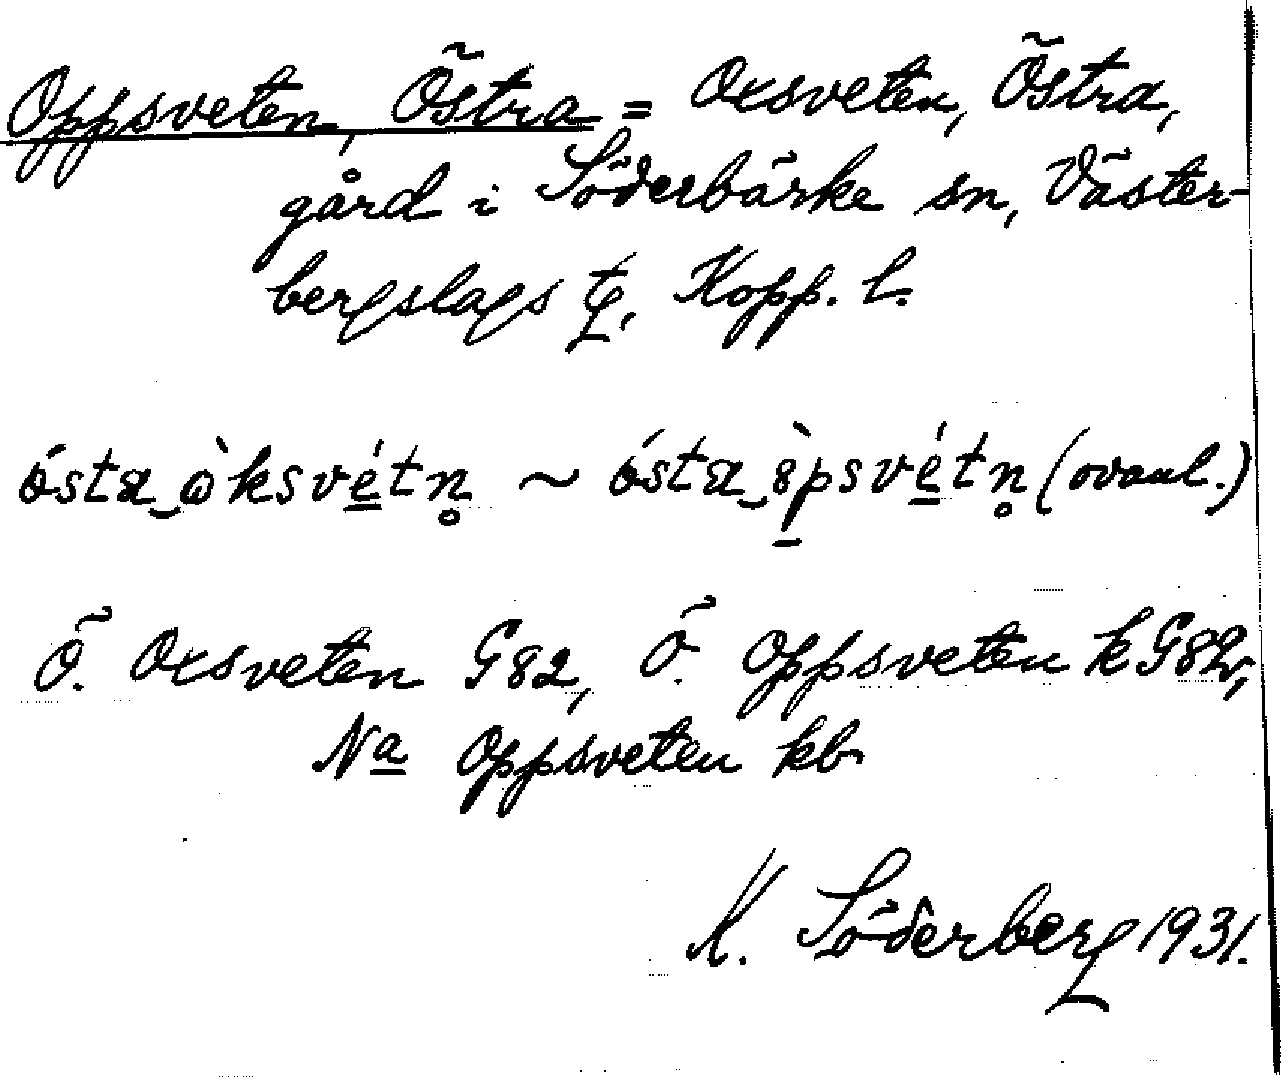 Oppsveten, Östra = Oxsveten, Östra,
gård i Söderbärke sn, Väster-
bergslags tg, Kopp. l.
(ovanl.)
Ö. Oxsveten G82, Ö. Oppsveten kG82,
Na Oppsveten kb
K. Söderberg 1931.